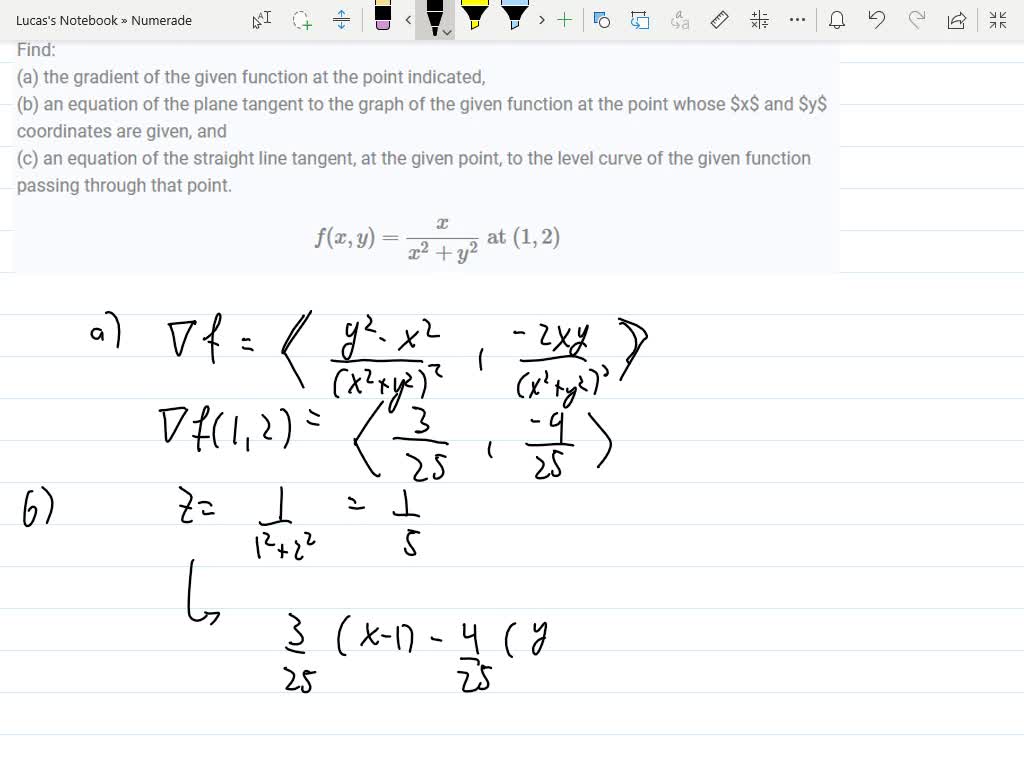 Lucas's Notebook » Numerade
Find:
(a) the gradient of the given function at the point indicated,
(b) an equation of the plane tangent to the graph of the given function at the point whose $x$ and $y$
coordinates are given, and
(c) an equation of the straight line tangent, at the given point, to the level curve of the given function
passing through that point.
f(x, y) = x / (x² + y²) at (1, 2)
a) ∇f = ⟨ (y² - x²) / (x² + y²)², -2xy / (x² + y²)² ⟩
∇f(1,2) = ⟨ 3/25, -4/25 ⟩
b) z = 1 / (1² + 2²) = 1/5
↳ 3/25 (x-1) - 4/25 (y